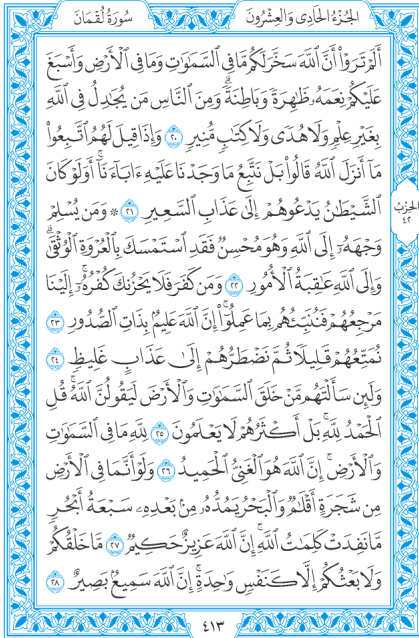 سُورَةُ لُقْمَانَ
الجُزْءُ الحَادِى وَالعِشْرُونَ
أَلَمْ تَرَوْا۟ أَنَّ ٱللَّهَ سَخَّرَ لَكُم مَّا فِى ٱلسَّمَٰوَٰتِ وَمَا فِى ٱلْأَرْضِ وَأَسْبَغَ
عَلَيْكُمْ نِعَمَهُۥ ظَٰهِرَةً وَبَاطِنَةً ۗ وَمِنَ ٱلنَّاسِ مَن يُجَٰدِلُ فِى ٱللَّهِ
بِغَيْرِ عِلْمٍ وَلَا هُدًى وَلَا كِتَٰبٍ مُّنِيرٍ ٢٠ وَإِذَا قِيلَ لَهُمُ ٱتَّبِعُوا۟
مَآ أَنزَلَ ٱللَّهُ قَالُوا۟ بَلْ نَتَّبِعُ مَا وَجَدْنَا عَلَيْهِ ءَابَآءَنَآ ۚ أَوَلَوْ كَانَ
ٱلشَّيْطَٰنُ يَدْعُوهُمْ إِلَىٰ عَذَابِ ٱلسَّعِيرِ ٢١ ۞ وَمَن يُسْلِمْ
وَجْهَهُۥٓ إِلَى ٱللَّهِ وَهُوَ مُحْسِنٌ فَقَدِ ٱسْتَمْسَكَ بِٱلْعُرْوَةِ ٱلْوُثْقَىٰ ۗ
وَإِلَى ٱللَّهِ عَٰقِبَةُ ٱلْأُمُورِ ٢٢ وَمَن كَفَرَ فَلَا يَحْزُنكَ كُفْرُهُۥٓ ۚ إِلَيْنَا
مَرْجِعُهُمْ فَنُنَبِّئُهُم بِمَا عَمِلُوٓا۟ ۚ إِنَّ ٱللَّهَ عَلِيمٌۢ بِذَاتِ ٱلصُّدُورِ ٢٣
نُمَتِّعُهُمْ قَلِيلًا ثُمَّ نَضْطَرُّهُمْ إِلَىٰ عَذَابٍ غَلِيظٍ ٢٤
وَلَئِن سَأَلْتَهُم مَّنْ خَلَقَ ٱلسَّمَٰوَٰتِ وَٱلْأَرْضَ لَيَقُولُنَّ ٱللَّهُ ۚ قُلِ
ٱلْحَمْدُ لِلَّهِ ۚ بَلْ أَكْثَرُهُمْ لَا يَعْلَمُونَ ٢٥ لِلَّهِ مَا فِى ٱلسَّمَٰوَٰتِ
وَٱلْأَرْضِ ۚ إِنَّ ٱللَّهَ هُوَ ٱلْغَنِىُّ ٱلْحَمِيدُ ٢٦ وَلَوْ أَنَّمَا فِى ٱلْأَرْضِ
مِن شَجَرَةٍ أَقْلَٰمٌ وَٱلْبَحْرُ يَمُدُّهُۥ مِنۢ بَعْدِهِۦ سَبْعَةُ أَبْحُرٍ
مَّا نَفِدَتْ كَلِمَٰتُ ٱللَّهِ ۗ إِنَّ ٱللَّهَ عَزِيزٌ حَكِيمٌ ٢٧ مَّا خَلْقُكُمْ
وَلَا بَعْثُكُمْ إِلَّا كَنَفْسٍ وَٰحِدَةٍ ۗ إِنَّ ٱللَّهَ سَمِيعٌۢ بَصِيرٌ ٢٨
الحِزْبُ
٤٢
٤١٣